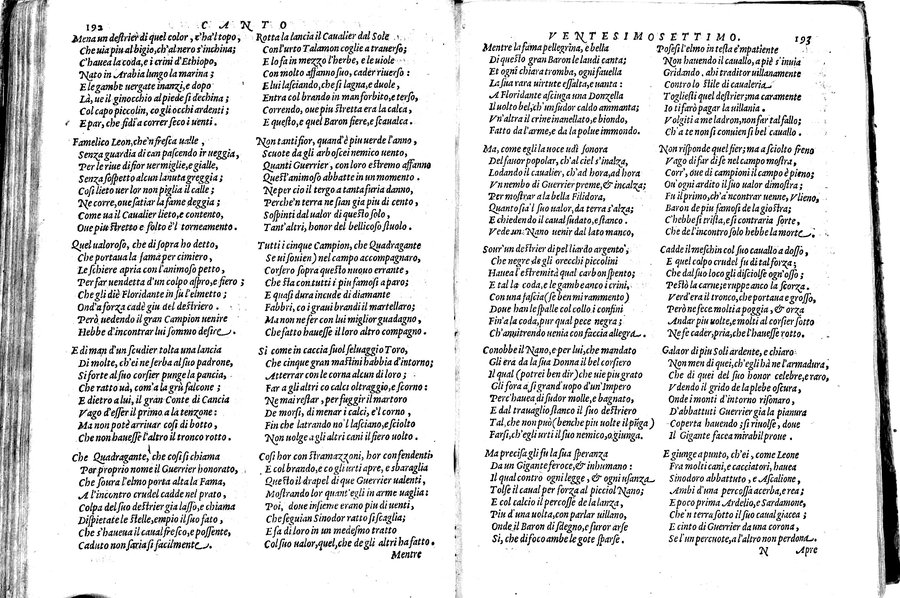 192 CANTO
Mena un destrier di quel color, c'ha'l topo,
Che uia piu al bigio, ch'al nero s'inchina;
C'hauea la coda, e i crini d'Ethiopo,
Nato in Arabia lungo la marina;
E le gambe uergate inanzi, e dopo
Là, ue il ginocchio al piede si dechina;
Col capo piccolin, co gli occhi ardenti;
E par, che sfidi a correr seco i uenti.
Famelico Leon, che'n fresca ualle,
Senza guardia di can pascendo ir ueggia,
Per le riue di fior uermiglie, e gialle,
Senza sospetto alcun lanuta greggia;
Così lieto uer lor non piglia il calle;
Ne corre, oue satiar la fame deggia;
Come ua il Caualier lieto, e contento,
Oue piu stretto e folto è'l torneamento.
Quel ualoroso, che di sopra ho detto,
Che portaua la fama per cimiero,
Le schiere apria con l'animoso petto,
Per far uendetta d'un colpo aspro, e fiero;
Che gli diè Floridante in su l'elmetto;
Ond'a forza cadè giu del destriero.
Però uedendo il gran Campion uenire
Hebbe d'incontrar lui sommo desire.
E di man d'un scudier tolta una lancia
Di molte, ch'ei ne serba al suo padrone,
Si forte al suo corsier punge la pancia,
Che ratto uà, com'a la grù falcone;
E dietro a lui, il gran Conte di Cancia
Vago d'esser il primo a la tenzone:
Ma non potè arriuar così di botto,
Che non hauesse l'altro il tronco rotto.
Che Quadragante, che così si chiama
Per proprio nome il Guerrier honorato,
Che soura l'elmo porta alta la Fama,
A l'incontro crudel cadde nel prato,
Colpa del suo destrier gia lasso, e chiama
Dispietate le stelle, empio il suo fato,
Che s'haueua il caual fresco, e possente,
Caduto non saria sì facilmente.
Rotta la lancia il Caualier dal Sole
Con l'urto Talamon coglie a trauerso;
E lo fa in mezzo l'herbe, e le uiole
Con molto affanno suo, cader riuerso:
E lui lasciando, che si lagna, e duole,
Entra col brando in man forbito, e terso,
Correndo, oue piu stretta era la calca,
E questo, e quel Baron fiere, e scaualca.
Non tanti fior, quand'è piu uerde l'anno,
Scuote da gli arboscei nemico uento,
Quanti Guerrier, con loro estremo affanno
Quest'animoso abbatte in un momento.
Ne per ciò il tergo a tanta furia danno,
Perche'n terra ne sian gia piu di cento,
Sospinti dal ualor di questo solo,
Tant'altri, honor del bellicoso stuolo.
Tutti i cinque Campion, che Quadragante
Se ui souien) nel campo accompagnaro,
Corsero sopra questo nuouo errante,
Che sta con tutti i piu famosi a paro;
E quasi dura incude di diamante
Fabbri, co i graui brandi il martellaro;
Ma non ne fer con lui miglior guadagno,
Che fatto hauesse il loro altro compagno.
Si come in caccia suol seluaggio Toro,
Che cinque gran mastini habbia d'intorno;
Atterrar con le corna alcun di loro;
Far a gli altri co calci oltraggio, e scorno:
Ne mai restar, per fuggir il martoro
De morsi, di menar i calci, e'l corno,
Fin che latrando no'l lasciano, e sciolto
Non uolge a gli altri cani il fiero uolto.
Così hor con stramazzoni, hor con fendenti
E col brando, e co gli urti apre, e sbaraglia
Questo il drapel di que Guerrier ualenti,
Mostrando lor quant'egli in arme uaglia:
Poi, doue insieme erano piu di uenti,
Che seguian Sinodor ratto si scaglia;
E fa di loro in un medesmo tratto
Col suo ualor, quel, che de gli altri ha fatto.
Mentre
VENTESIMOSETTIMO. 193
Mentre la fama pellegrina, e bella
Di questo gran Baron le laudi canta;
Et ogni chiara tromba, ogni fauella
La sua rara uirtute essalta, e uanta;
A Floridante asciuga una Donzella
Il uolto bel, ch'un sudor caldo ammanta;
Vn'altra il crine inanellato, e biondo,
Fatto da l'arme, e da la polue immondo.
Ma, come egli la uoce udì sonora
Del fauor popolar, ch'al ciel s'inalza,
Lodando il caualier, ch'ad hora, ad hora
Vn nembo di Guerrier preme, & incalza;
Per mostrar a la bella Filidora,
Quanto sia'l suo ualor, da terra s'alza;
E chiedendo il caual sudato, e stanco,
Vede un Nano uenir dal lato manco,
Sour'un destrier di pel liardo argento,
Che negre de gli orecchi piccolini
Hauea l'estremità qual carbon spento;
E tal la coda, e le gambe anco i crini,
Con una fascia (se ben mi rammento)
Doue han le spalle col collo i confini
Fin'a la coda, pur qual pece negra;
Ch'a mirendo uenia con faccia allegra.
Conobbe il Nano, e per lui, che mandato
Gli era da la sua Donna il bel corsiero
Il qual (potrei ben dir) che uie piu grato
Gli fora a sì grand'uopo d'un'Impero
Perc'hauea di sudor molle, e bagnato,
E dal trauaglio stanco il suo destriero
Tal, che non può (benche piu uolte il pūga)
Farsi, ch'egli urti il suo nemico, o giunga.
Ma precisa gli fu la sua speranza
Da un Gigante feroce, & inhumano:
Il qual contro ogni legge, & ogni usanza
Tolse il caual per forza al picciol Nano;
E col calcio il percosse de la lanza,
Piu d'una uolta, con parlar uillano,
Onde il Baron di sdegno, e furor arse
Si, che di foco ambe le gote sparse.
Possesi l'elmo in testa e'mpatiente
Non hauendo il cauallo, a piè s'inuia
Gridando. ahi traditor uillanamente
Contro lo stile di caualeria
Togliesti quel destrier; ma caramente
Io ti farò pagar la uillania.
Volgiti a me ladron, non far tal fallo;
Ch'a te non si conuien sì bel cauallo.
Non risponde quel fier; ma a sciolto freno
Vago di far di se nel campo mostra,
Corr', oue di campioni il campo è pieno;
Ou'ogni ardito il suo ualor dimostra;
Fu il primo, ch'a'ncontrar uenne, Vlieno,
Baron de piu famosi de la giostra;
C'hebbe sì trista, e sì contraria sorte,
Che de l'incontro solo hebbe la morte.
Cadde il meschin col suo cauallo a dosso,
E quel colpo crudel fu di tal forza;
Che dal suo loco gli disciolse ogn'osso;
Pestò la carne; e ruppe anco la scorza.
Verd'era il tronco, che portaua e grosso,
Però ne fece molti a poggia, & orza
Andar piu uolte, e molti al corsier sotto
Ne fe cader, pria, che l'hauesse rotto.
Galaor di piu Soli ardente, e chiaro
Non men di quei, ch'egli hà ne l'armadura,
Che di quei del suo honor celebre, e raro,
Vdendo il grido de la plebe oscura,
Onde i monti d'intorno risonaro,
D'abbattuti Guerrier gia la pianura
Coperta hauendo; si riuolse, doue
Il Gigante facea mirabil proue.
E giunge a punto, ch'ei, come Leone
Fra molti cani, e cacciatori, hauea
Sinodoro abbattuto, e Ascalione,
Ambi d'una percossa acerba, e rea;
E poco prima Ardelio, e Sardamone,
Che'n terra sotto il suo caual giacea;
E cinto di Guerrier da una corona,
Se l'un percuote, a l'altro non perdona.
N Apre